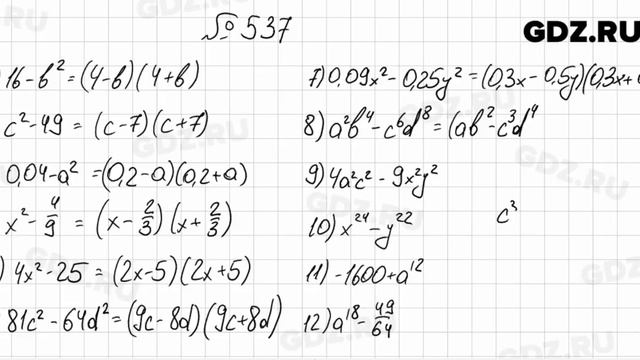 № 537
GDZ.RU
16 - b² = (4-b)(4+b)
c² - 49 = (c-7)(c+7)
0,04 - a² = (0,2-a)(0,2+a)
x² - 4/9 = (x - 2/3)(x + 2/3)
) 4x² - 25 = (2x-5)(2x+5)
81c² - 64d² = (9c-8d)(9c+8d)
7) 0,09x² - 0,25y² = (0,3x - 0,5y)(0,3x+
8) a²b⁴ - c⁶d⁸ = (ab² - c³d⁴
9) 4a²c² - 9x²y²
10) x²⁴ - y²²
c³
11) -1600 + a¹²
12) a¹⁸ - 49/64